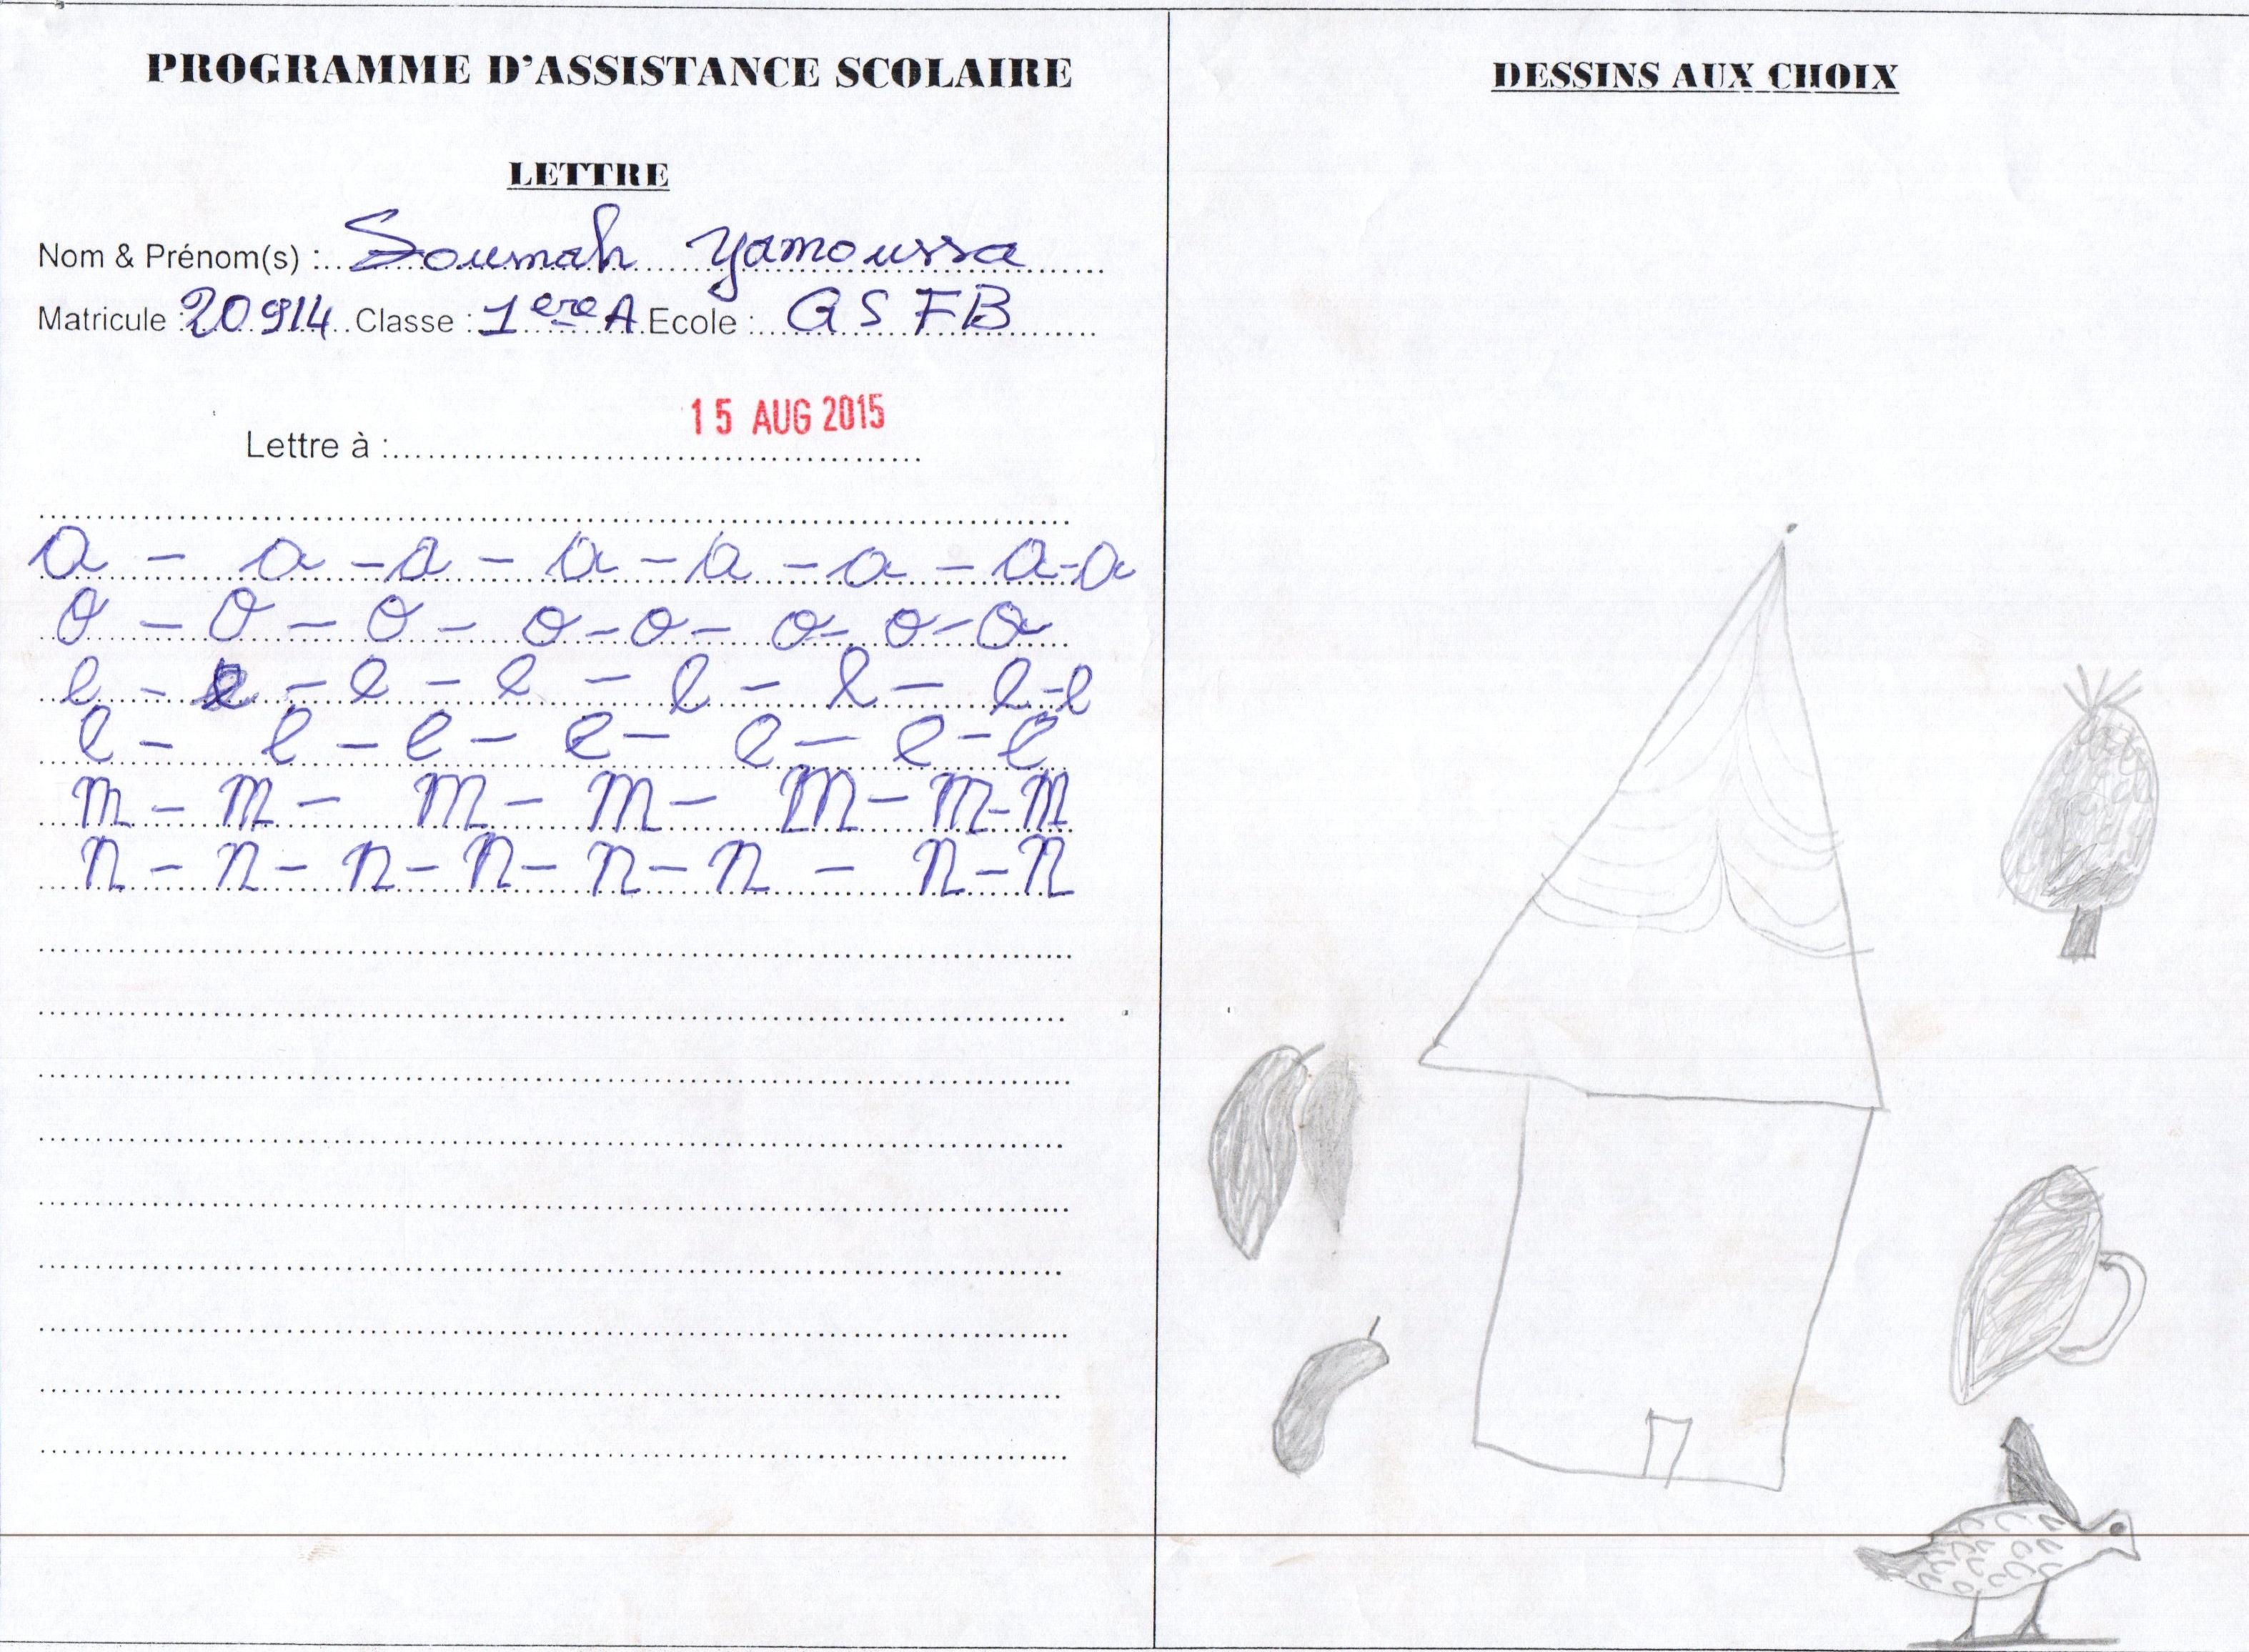 PROGRAMME D'ASSISTANCE SCOLAIRE
LETTRE
Nom & Prénom(s) : Soumah Yamoussa
Matricule : 20914 Classe : 1ere A Ecole : GSFB
15 AUG 2015
Lettre à :
a - a - a - a - a - a - a - a
o - o - o - o - o - o - o - o
e - e - e - e - e - e - e - e
e - e - e - e - e - e - e
m - m - m - m - m - m - m
n - n - n - n - n - n - n - n
DESSINS AUX CHOIX